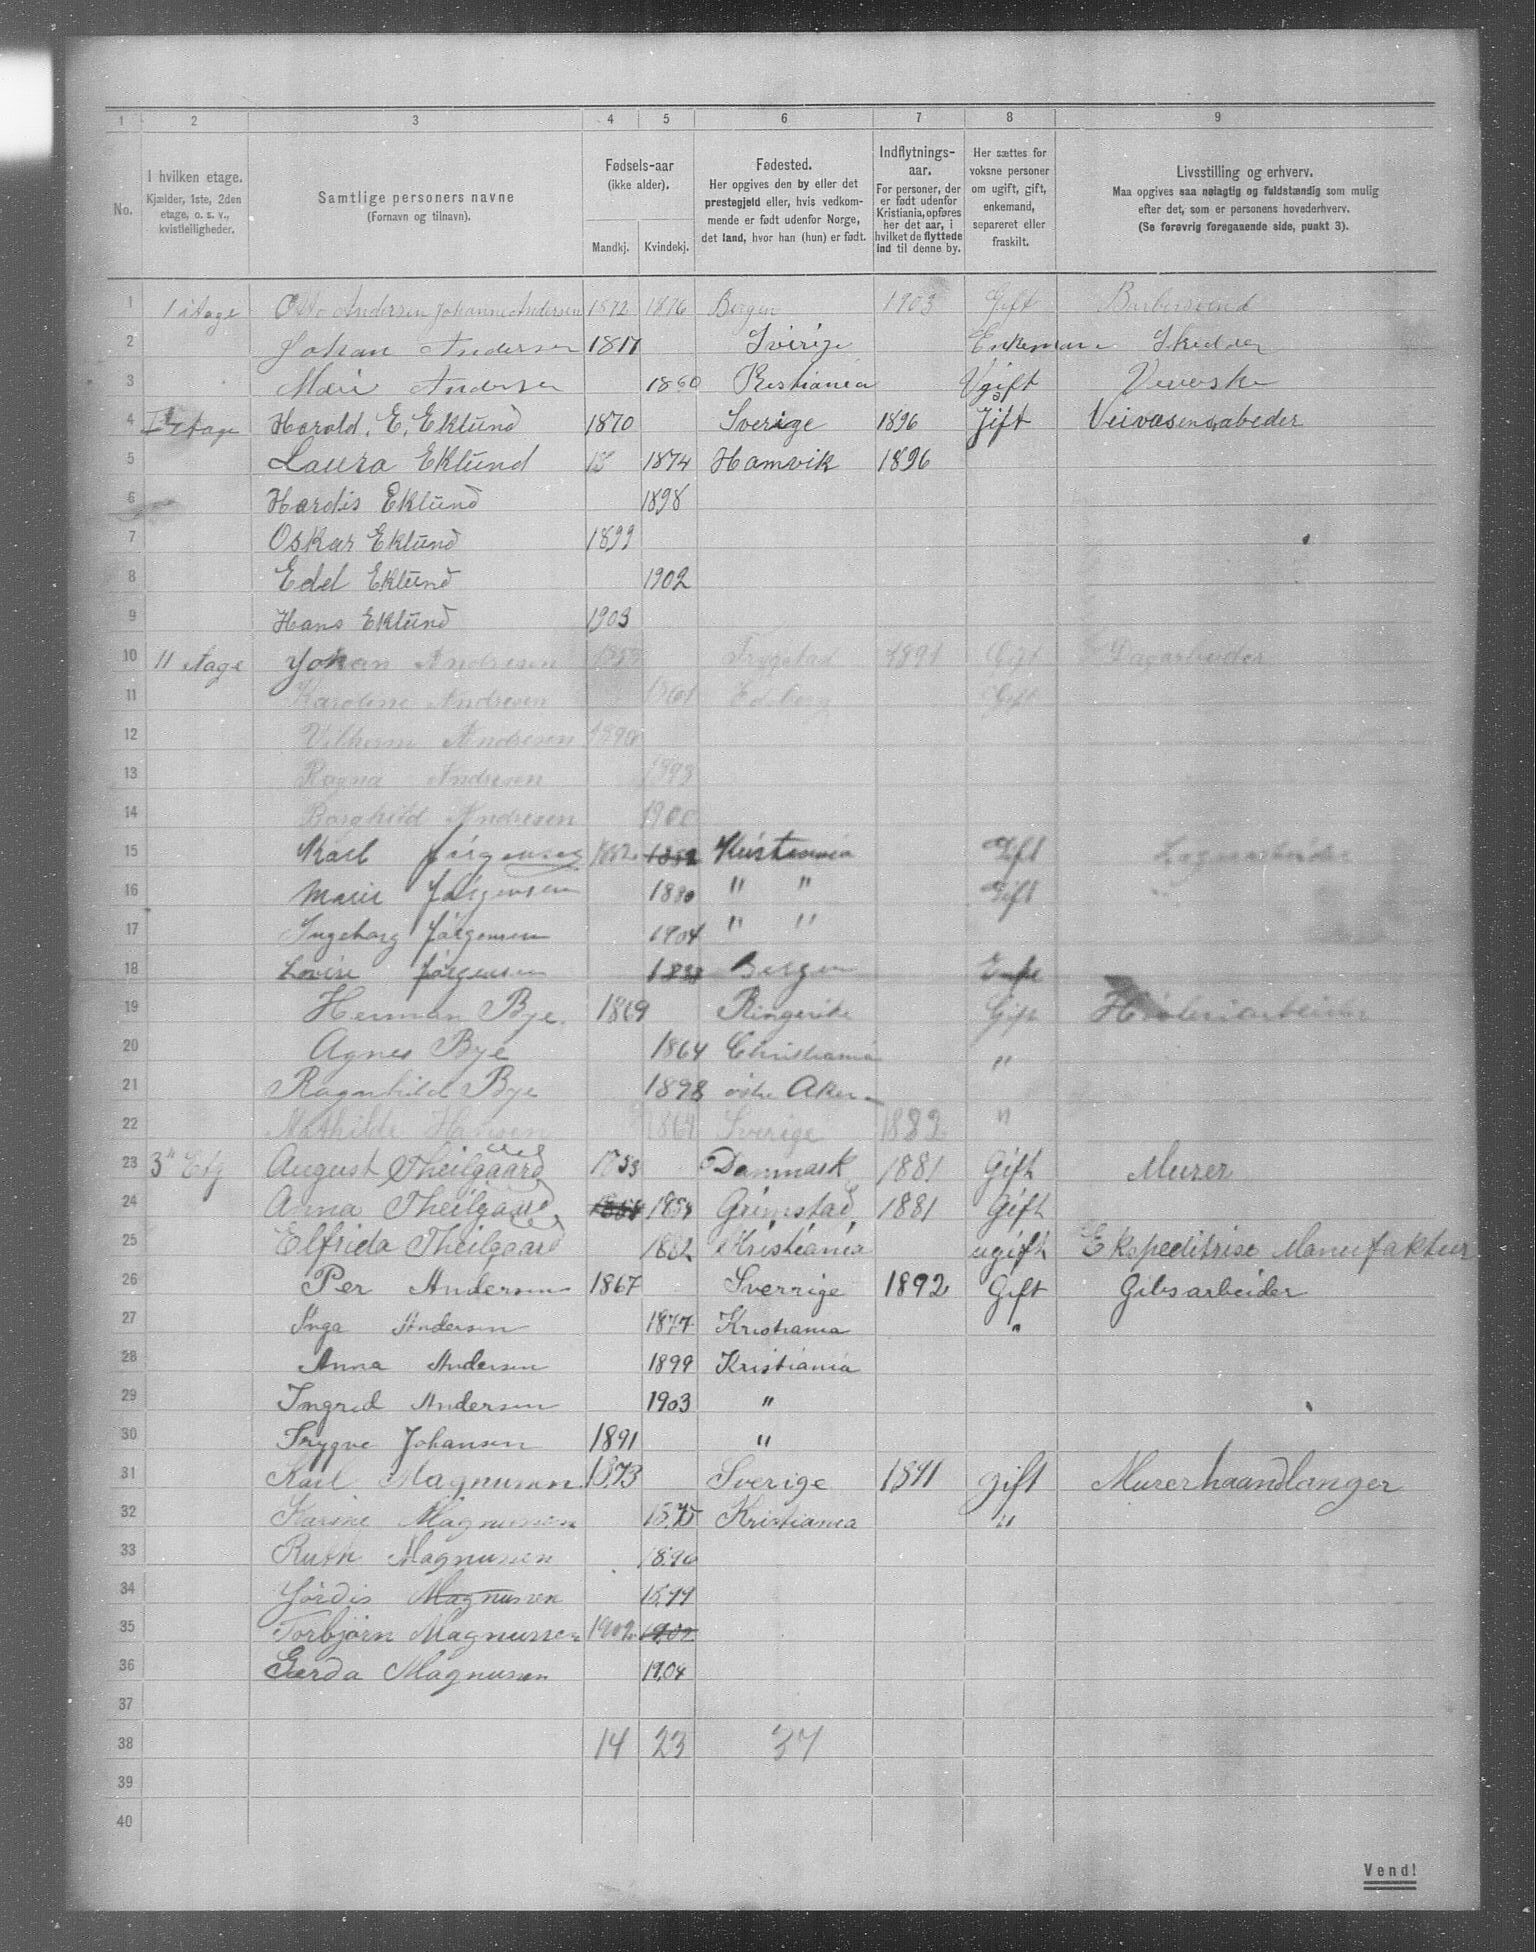 1 2 3 4 5 6 7 8 9
No.
I hvilken etage.
Kjælder, 1ste, 2den
etage, o. s. v.,
kvistleiligheder.
Samtlige personers navne
(Fornavn og tilnavn).
Fødsels-aar
(ikke alder).
Mandkj. Kvindekj.
Fødested.
Her opgives den by eller det
prestegjeld eller, hvis vedkom-
mende er født udenfor Norge,
det land, hvor han (hun) er født.
Indflytnings-
aar.
For personer, der
er født udenfor
Kristiania, opføres
her det aar, i
hvilket de flyttede
ind til denne by.
Her sættes for
voksne personer
om ugift, gift,
enkemand,
separeret eller
fraskilt.
Livsstilling og erhverv.
Maa opgives saa nøiagtig og fuldstændig som mulig
efter det, som er personens hovederhverv.
(Se forøvrig foregaaende side, punkt 3).
1 1 etage Otto Andersen Johanne Andersen 1872 1876 Bergen 1903 Gift Barbersvend
2 Johan Andersen 1817 Sverige Enkeman Skrædder
3 Andersen 1860 Kristiania Ugift
4 etage Harald. E. Eklund 1870 Sverige 1896 Gift
5 Laura Eklund 18 1874 Hamvik 1896
6 Hardis Eklund 1898
7 Oskar Eklund 1899
8 Edel Eklund 1902
9 Hans Eklund 1903
10 11 etage Johan Andresen Trygstad 1891 Gift Dagarbeider
11 Karoline Andresen 1861 Edsberg Gift
12 Vilhelm Andresen
13 Ragna Andresen
14 Borghild Andresen 1900
15 Karl Jørgensen 1882 Kristiania Gift
16 Marie Jørgensen 1880 " " Gift
17 Ingeborg Jørgensen 1904 " "
18 Lovise Jørgensen Bergen Enke
19 Herman Bye. 1869 Ringerike Gift
20 Agnes Bye 1864 Christiania "
21 Ragnhild Bye 1898 østre Aker
22 Mathilde Hansen 1864 Sverige 1882 "
23 3die Etg August Theilgaard 1853 Danmark 1881 Gift Murer
24 Anna Theilgaard 1854 Grimstad 1881 Gift
25 Elfrida Theilgaard 1882 Kristiania ugift Ekspeditrise Manufaktur
26 Per Andersen 1867 Sverrige 1892 Gift Gibsarbeider
27 Inga Andersen 1877 Kristiania "
28 Anna Andersen 1899 Kristiania
29 Ingrid Andersen 1903 "
30 Trygve Johansen 1891 "
31 Karl Magnussen 1873 Sverige 1891 gift Murerhaandlanger
32 Karine Magnussen 1875 Kristiania "
33 Ruth Magnussen 1896
34 Hjørdis Magnussen
35 Torbjørn Magnussen 1902 1902
36 Gerda Magnussen 1904
37
38 14 23 37
39
40
Vend!